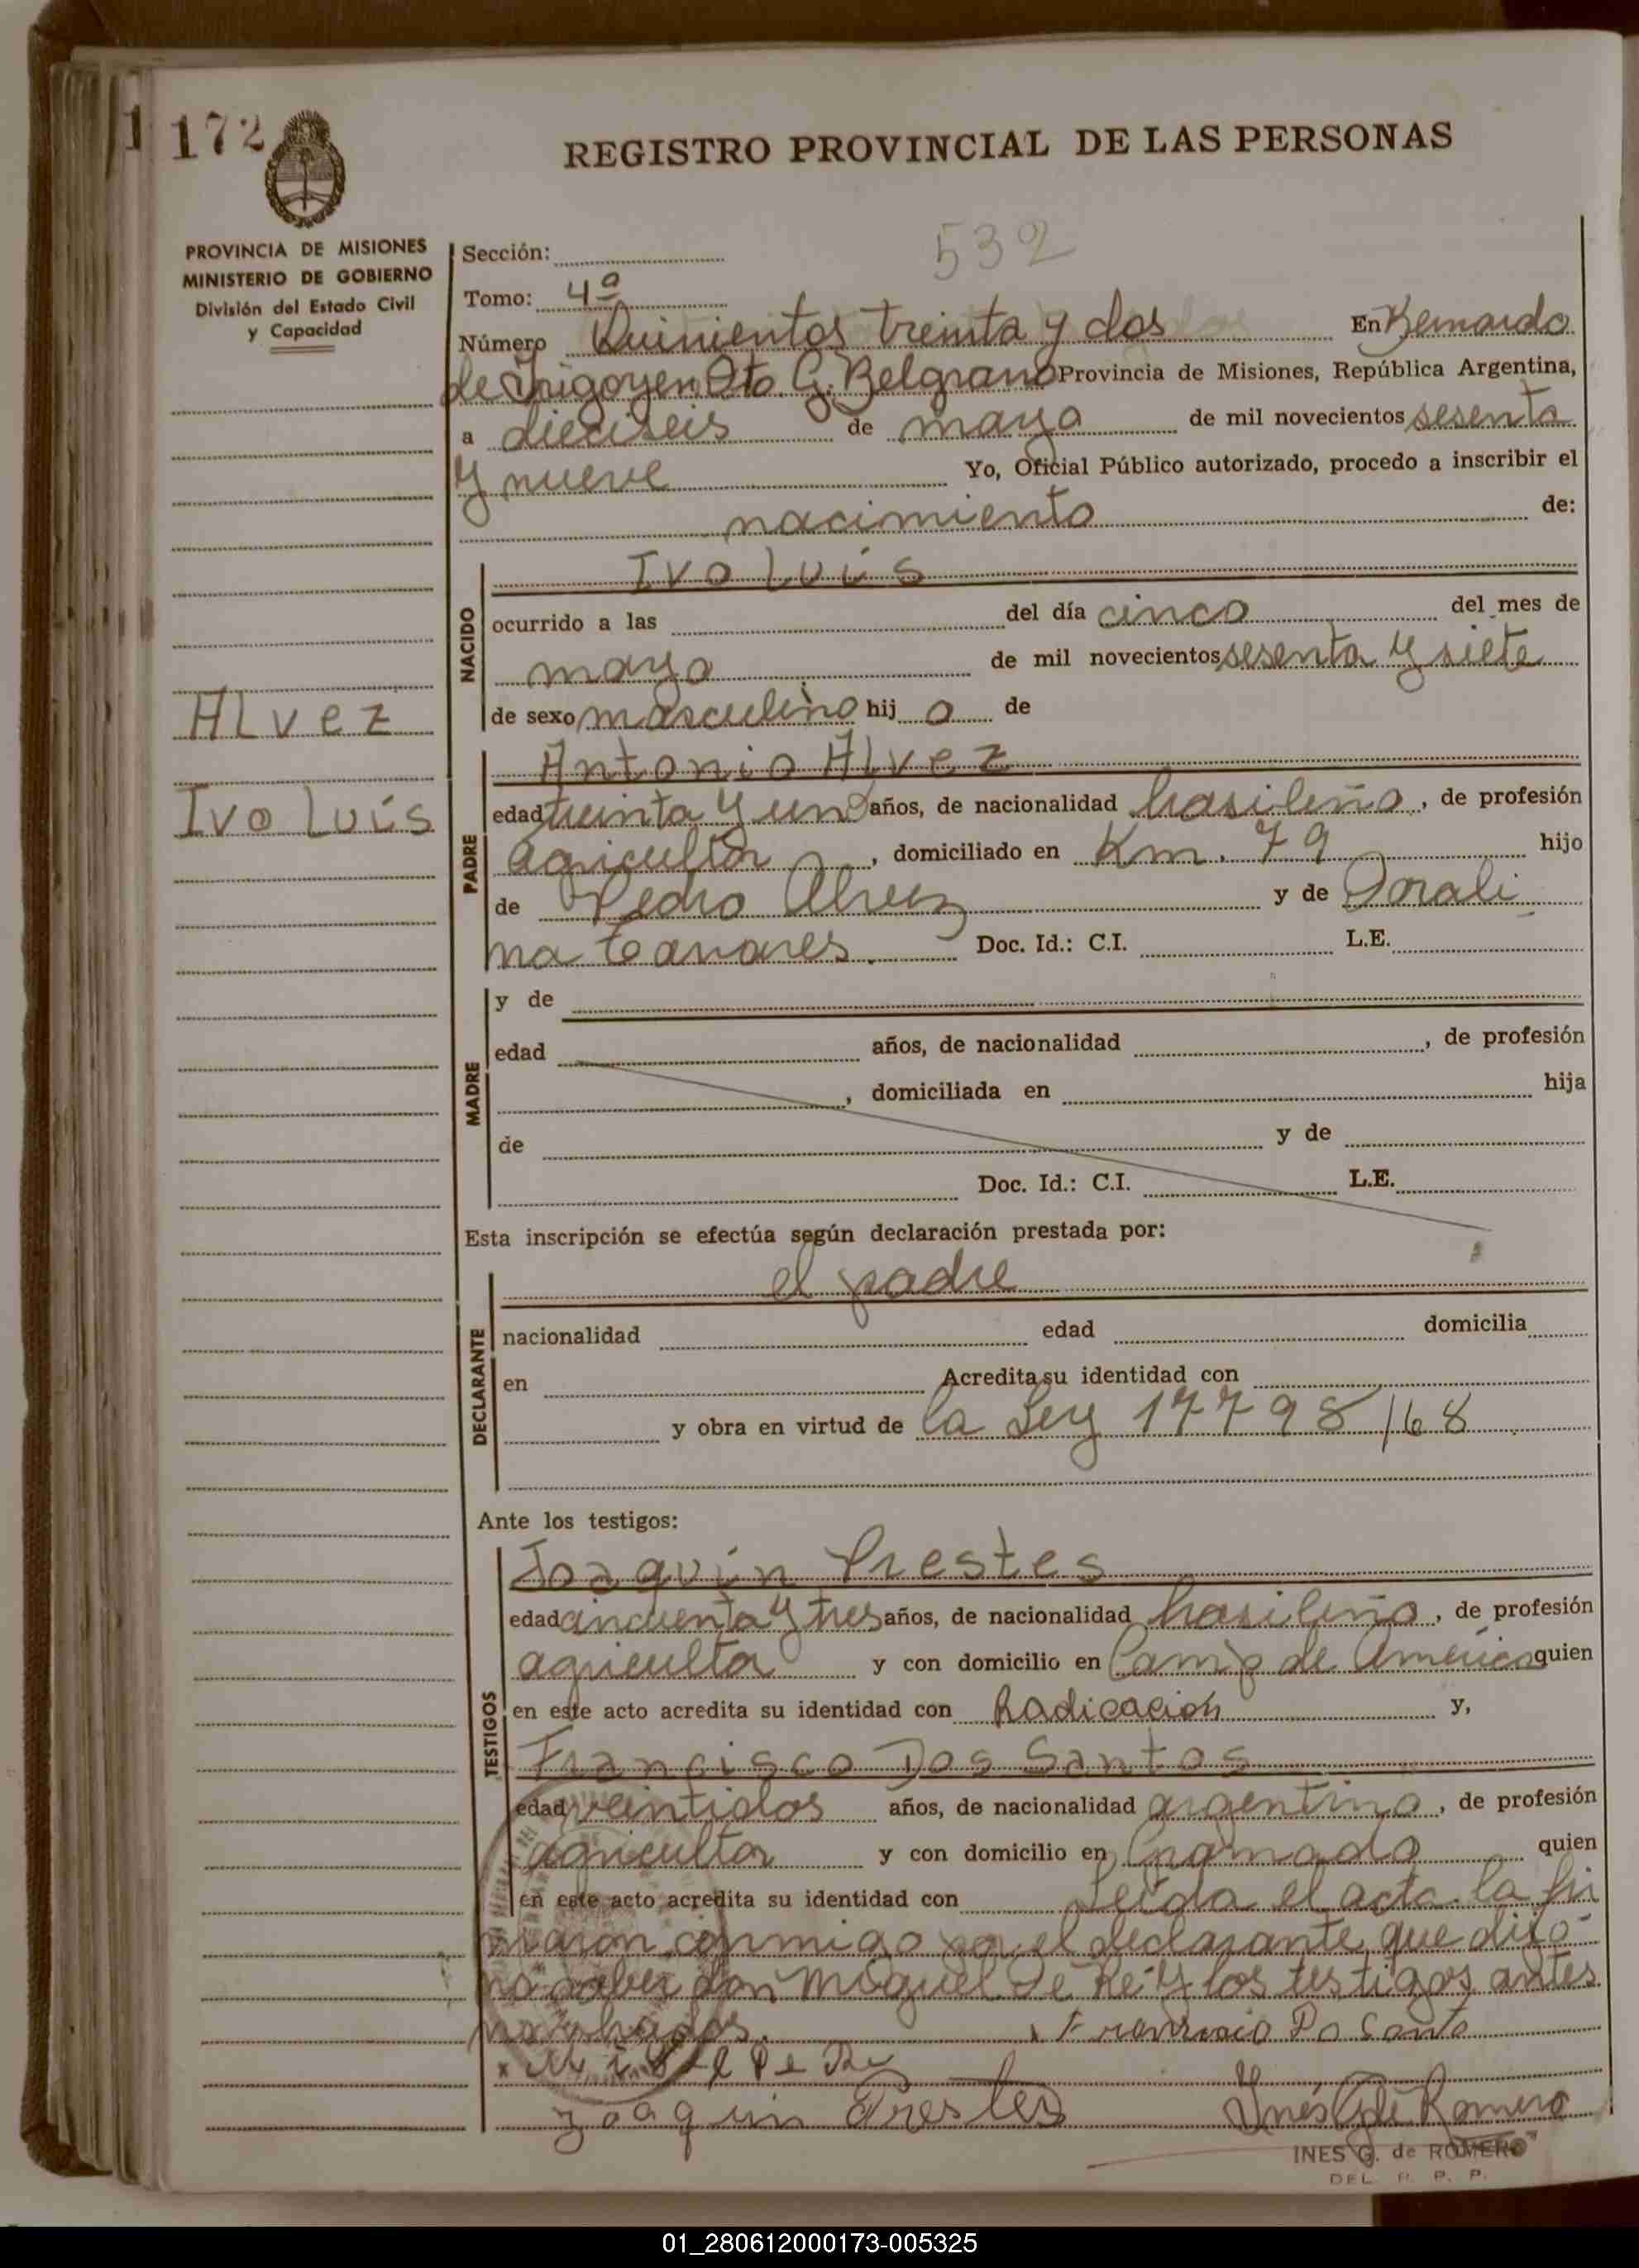 1 172
REGISTRO PROVINCIAL DE LAS PERSONAS
PROVINCIA DE MISIONES
MINISTERIO DE GOBIERNO
División del Estado Civil
y Capacidad
532
Sección:
Tomo: 4º
Número Quinientos treinta y dos En Bernardo
de Irigoyen Dto. G. Belgrano Provincia de Misiones, República Argentina,
a dieciseis de mayo de mil novecientos sesenta
y nueve Yo, Oficial Público autorizado, procedo a inscribir el
nacimiento de:
NACIDO
Ivo Luís
ocurrido a las del día cinco del mes de
mayo de mil novecientos sesenta y siete
de sexo masculino hij o de
Alvez
Ivo Luís
PADRE
Antonio Alvez
edad treinta y un años, de nacionalidad brasileño, de profesión
agricultor, domiciliado en Km. 79 hijo
de Pedro Alvez y de Dorali
na Tavares. Doc. Id.: C.I. L.E.
MADRE
y de
edad años, de nacionalidad , de profesión
, domiciliada en hija
de y de
Doc. Id.: C.I. L.E.
Esta inscripción se efectúa según declaración prestada por:
DECLARANTE
el padre
nacionalidad edad domicilia
en Acredita su identidad con
y obra en virtud de la Ley 17798/68
Ante los testigos:
TESTIGOS
Joaquín Prestes
edad cincuenta y tres años, de nacionalidad brasileño, de profesión
agricultor y con domicilio en Camp de América quien
en este acto acredita su identidad con Radicación y,
Francisco Dos Santos
edad veintidos años, de nacionalidad argentino, de profesión
agricultor y con domicilio en Gramado quien
en este acto acredita su identidad con Leída el acta la fir
maron conmigo por el declarante que dijo
no saber don Miguel De Re y los testigos antes
nombrados.
x Francisco Do Santo
x Miguel De Re
Joaquin Prestes Inés G. de Romero
INES G. de ROMERO
DEL. R. P. P.
01_280612000173-005325